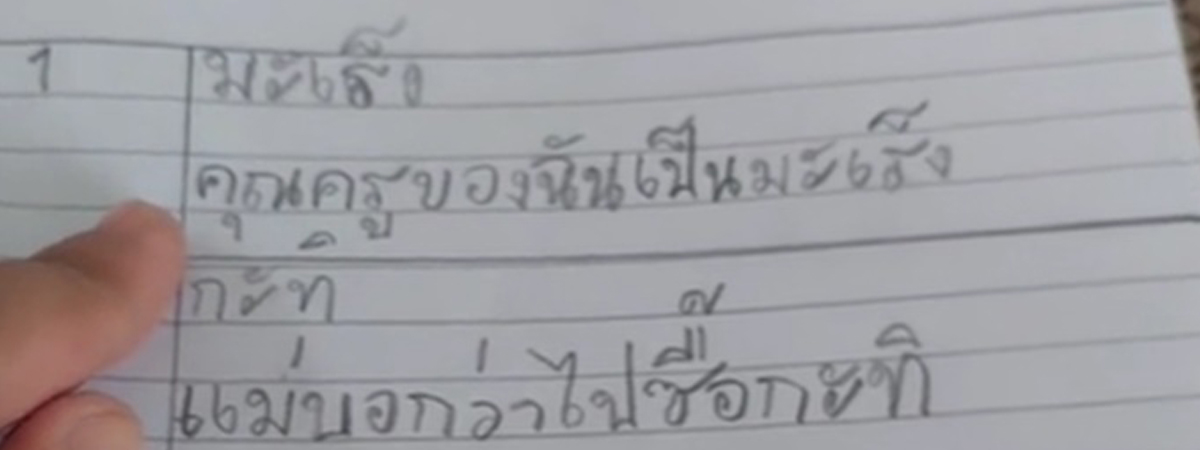 1 มะเร็ง
คุณครูของฉันเป็นมะเร็ง
กะทิ
แม่บอกว่าไปซื้อกะทิ